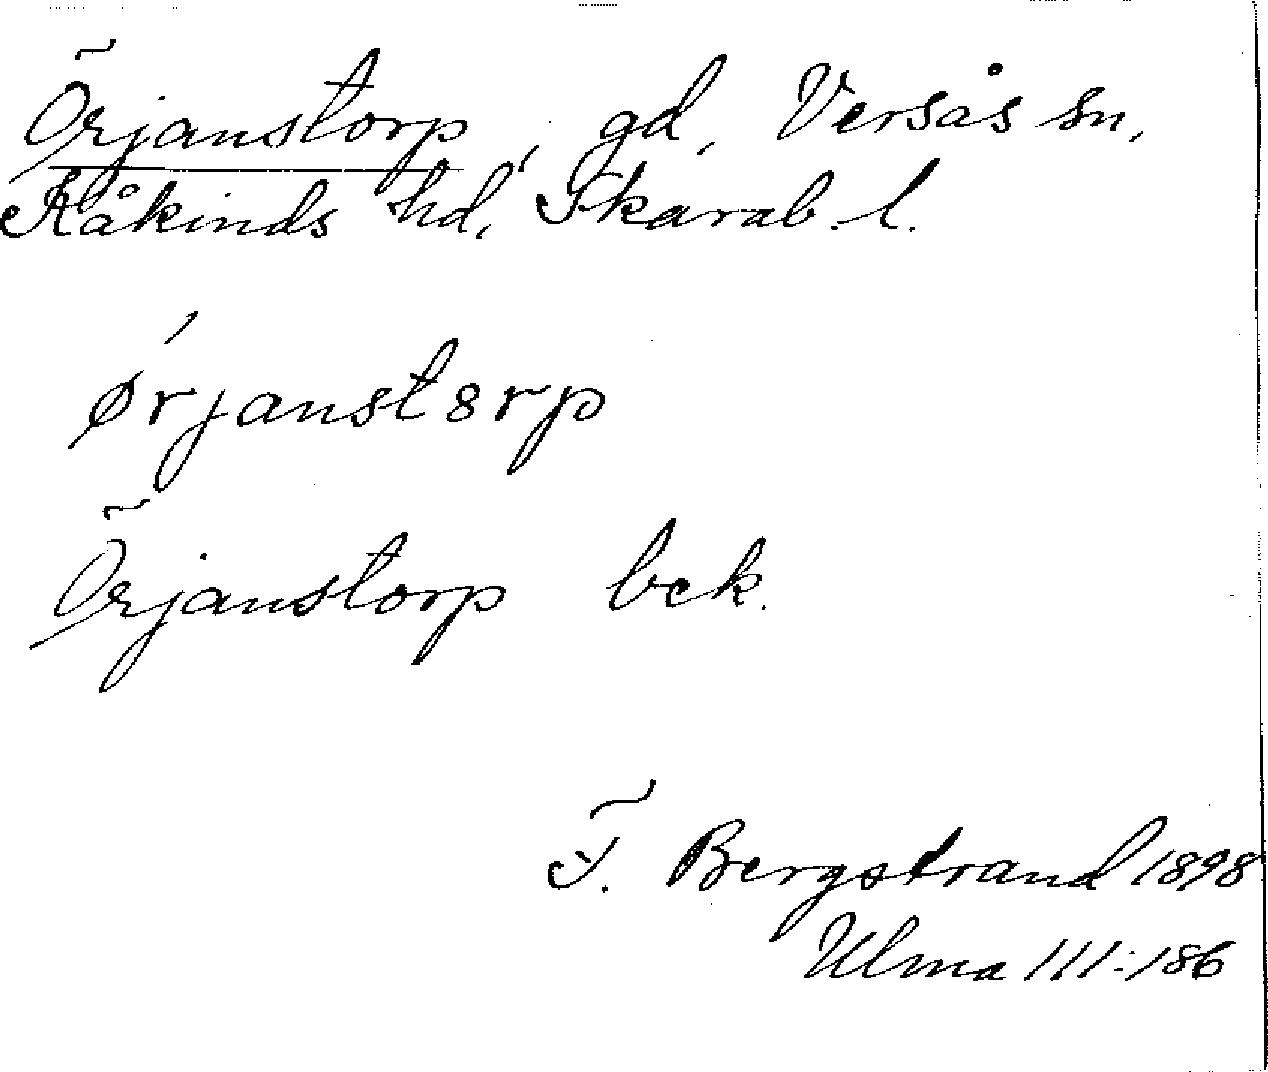 Örjanstorp, gd, Versås sn,
Kåkinds hd, Skarab. l.
ørjanstorp
Örjanstorp bek.
F. Bergstrand 1898
Ulma 111:186